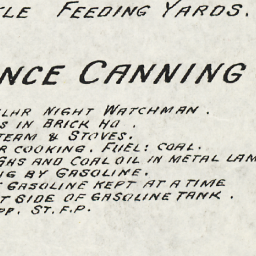 LE FEEDING YARDS.
NCE CANNING
LAR NIGHT WATCHMAN.
S IN BRICK HO.
TEAM & STOVES.
R COOKING. FUEL: COAL.
GAS AND COAL OIL IN METAL LAM
G BY GASOLINE.
GASOLINE KEPT AT A TIME
T SIDE OF GASOLINE TANK.
PP. ST. F.P.